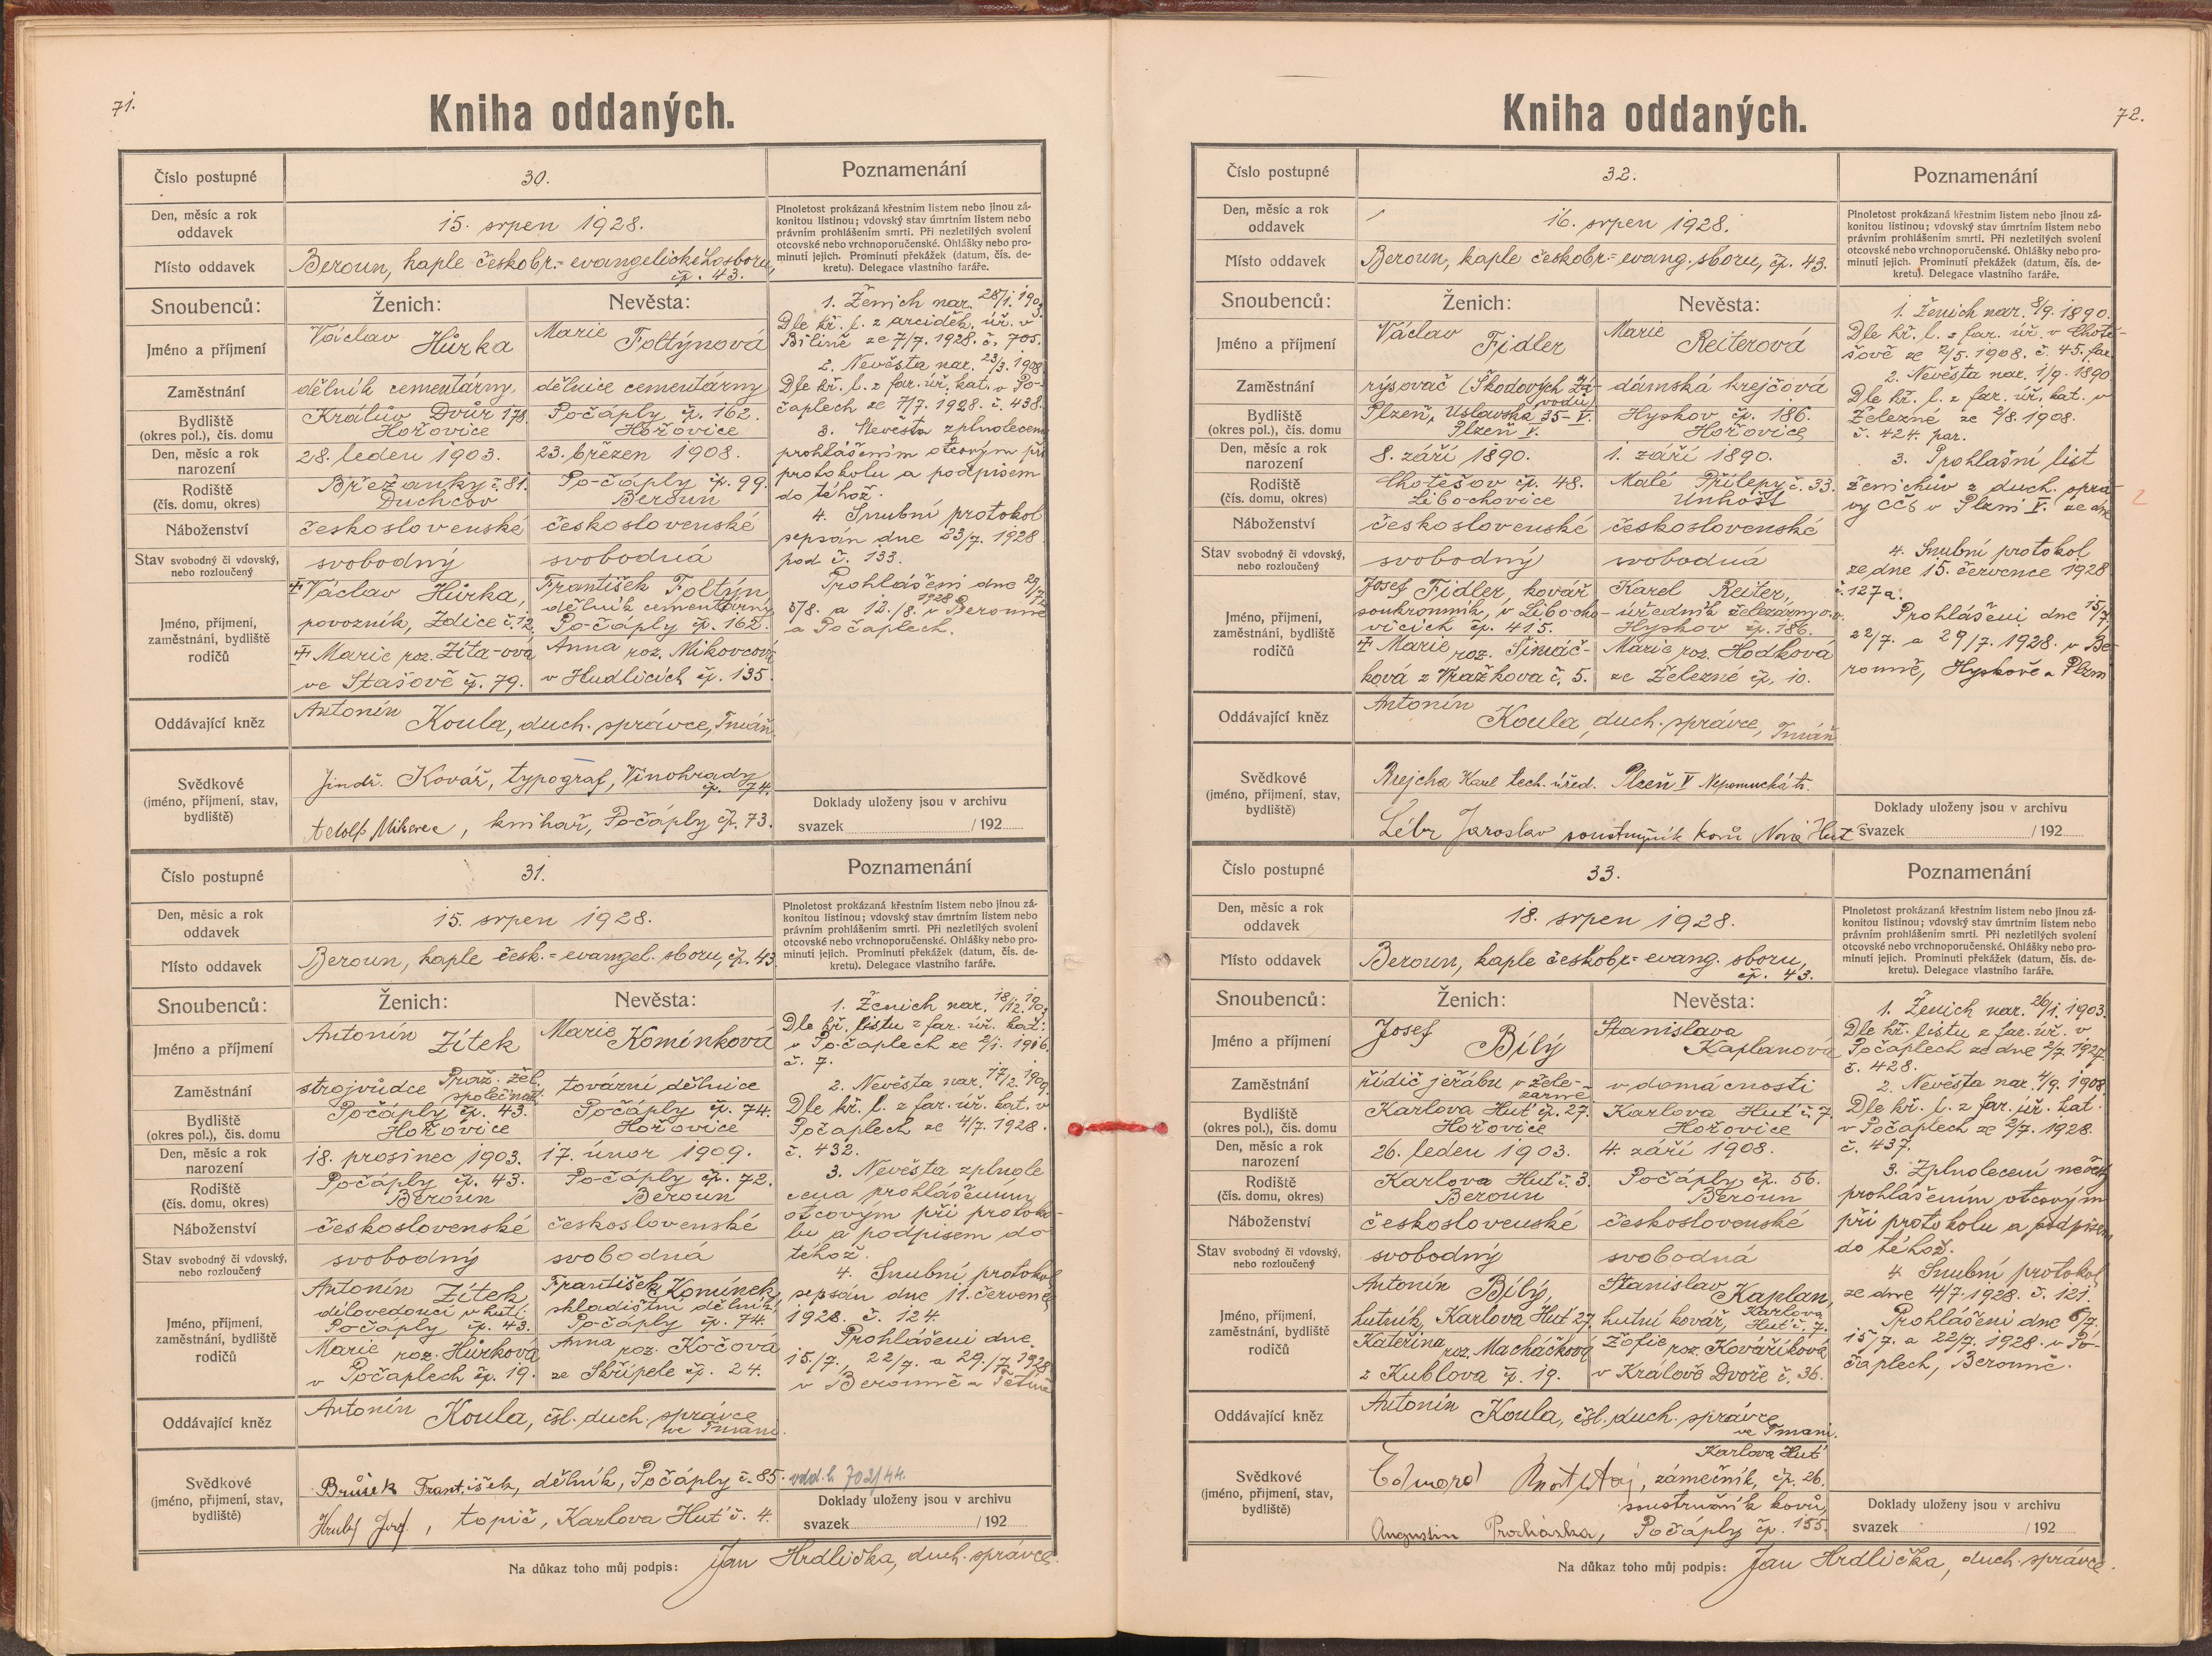 71.
Kniha oddaných.
Číslo postupné
30.
Poznamenání
Den, měsíc a rok
oddavek
15. srpen 1928.
Plnoletost prokázaná křestním listem nebo jinou zá-
konitou listinou; vdovský stav úmrtním listem nebo
právním prohlášením smrti. Při nezletilých svolení
otcovské nebo vrchnoporučenské. Ohlášky nebo pro-
minutí jejich. Prominutí překážek (datum, čís. de-
kretu). Delegace vlastního faráře.
Místo oddavek
Beroun, kaple českobr.=evangelického sboru,
čp. 43.
Snoubenců:
Ženich:
Nevěsta:
Jméno a příjmení
Václav Hůrka
Marie Foltýnová
Zaměstnání
dělník cementárny,
dělnice cementárny
Bydliště
(okres pol.), čís. domu
Králův Dvůr 178.
Hořovice
Počáply čp. 162.
Hořovice
Den, měsíc a rok
narození
28. leden 1903.
23. březen 1908.
Rodiště
(čís. domu, okres)
Břežanky č. 81.
Duchcov
Počáply čp. 99.
Beroun
Náboženství
československé
československé
Stav svobodný či vdovský,
nebo rozloučený
svobodný
svobodná
Jméno, příjmení,
zaměstnání, bydliště
rodičů
Václav Hůrka,
povozník, Zdice č. 12.
Marie roz. Zíta-ová
ve Stašově č. 79.
František Foltýn
dělník cementárny
Počáply čp. 162.
Anna roz. Mikovcová
v Hudlicích čp. 135.
Oddávající kněz
Antonín Koula, duch. správce, Tmáň.
Svědkové
(jméno, příjmení, stav,
bydliště)
Jindř. Kovář, typograf, Vinohrady
čp. 74.
Adolf, knihař, Počáply čp. 73.
1. Ženich nar. 28/1. 1903.
Dle kř. l. z arciděk. úř. v
Bílině ze 7/7. 1928. č. 705.
2. Nevěsta nar. 23/3. 1908
Dle kř. l. z far. úř. kat. v Po-
čaplech ze 7/7. 1928. č. 438.
3. Nevěsta zplnolecena
prohlášením otcovým při
protokolu a podpisem
do téhož.
4. Snubní protokol
sepsán dne 23/7. 1928
pod č. 133.
Prohlášeni dne 29/7.
5/8. a 12./8. 1928 v Berouně
a Počaplech.
Doklady uloženy jsou v archivu
svazek /192
Číslo postupné
31.
Poznamenání
Den, měsíc a rok
oddavek
15. srpen 1928.
Plnoletost prokázaná křestním listem nebo jinou zá-
konitou listinou; vdovský stav úmrtním listem nebo
právním prohlášením smrti. Při nezletilých svolení
otcovské nebo vrchnoporučenské. Ohlášky nebo pro-
minutí jejich. Prominutí překážek (datum, čís. de-
kretu). Delegace vlastního faráře.
Místo oddavek
Beroun, kaple česk.=evangel. sboru, čp. 43.
Snoubenců:
Ženich:
Nevěsta:
Jméno a příjmení
Antonín Zítek
Marie Komínková
Zaměstnání
strojvůdce Praž. žel.
společnost.
tovární dělnice
Bydliště
(okres pol.), čís. domu
Počáply čp. 43.
Hořovice
Počáply čp. 74.
Hořovice
Den, měsíc a rok
narození
18. prosinec 1903.
17. únor 1909.
Rodiště
(čís. domu, okres)
Počáply čp. 43.
Beroun
Počáply čp. 72.
Beroun
Náboženství
československé
československé
Stav svobodný či vdovský,
nebo rozloučený
svobodný
svobodná
Jméno, příjmení,
zaměstnání, bydliště
rodičů
Antonín Zítek
dílovedoucí v huti.
Počáply čp. 43.
Marie roz. Hůrková
v Počaplech čp. 19.
František Komínek,
skladištní dělník,
Počáply čp. 74.
Anna roz. Kočová
ze Skřiple čp. 24.
Oddávající kněz
Antonín Koula, čsl. duch. správce
ve Tmani.
Svědkové
(jméno, příjmení, stav,
bydliště)
Brůšek František, dělník, Počáply č. 85.
Hrubý Josef, topič, Karlova Huť č. 4.
1. Ženich nar. 18/12. 1903
Dle kř. listu z far. úř. kat.
v Počaplech ze 2/1. 1916.
č. 7.
2. Nevěsta nar. 17/2. 1909.
Dle kř. l. z far. úř. kat. v
Počaplech ze 4/7. 1928.
č. 432.
3. Nevěsta zplnole
cena prohlášením
otcovým při protoko-
lu a podpisem do
téhož.
4. Snubní protokol
sepsán dne 11. července
1928. č. 124.
Prohlášeni dne
15./7., 22/7. a 29./7. 1928
v Berouně a
odd. l. 702/44.
Doklady uloženy jsou v archivu
svazek /192
Na důkaz toho můj podpis: Jan Hrdlička, duch. správce.
72.
Kniha oddaných.
Číslo postupné
32.
Poznamenání
Den, měsíc a rok
oddavek
16. srpen 1928.
Plnoletost prokázaná křestním listem nebo jinou zá-
konitou listinou; vdovský stav úmrtním listem nebo
právním prohlášením smrti. Při nezletilých svolení
otcovské nebo vrchnoporučenské. Ohlášky nebo pro-
minutí jejich. Prominutí překážek (datum, čís. de-
kretu). Delegace vlastního faráře.
Místo oddavek
Beroun, kaple českobr.=evang. sboru, čp. 43.
Snoubenců:
Ženich:
Nevěsta:
Jméno a příjmení
Václav Fidler
Marie Reiterová
Zaměstnání
rýsovač (Škodových Zá-
vodů)
dámská krejčová
Bydliště
(okres pol.), čís. domu
Plzeň, Úslavská 35-V.
Plzeň V.
Hyskov čp. 186.
Hořovice
Den, měsíc a rok
narození
8. září 1890.
1. září 1890.
Rodiště
(čís. domu, okres)
Chotěšov čp. 48.
Libochovice
Malé Přílepy č. 33.
Unhošť
Náboženství
československé
československé
Stav svobodný či vdovský,
nebo rozloučený
svobodný
svobodná
Jméno, příjmení,
zaměstnání, bydliště
rodičů
Josef Fidler, kovář
soukromník, v Libocho-
vicích čp. 415.
Marie roz. Šimáč-
ková z Vražkova č. 5.
Karel Reiter,
úředník železárny v. v.
Hyskov čp. 186.
Marie roz. Hodková
ze Železné čp. 10.
Oddávající kněz
Antonín Koula, duch. správce, Tmáň
Svědkové
(jméno, příjmení, stav,
bydliště)
Brejcha Karel tech. úřed. Plzeň V Nepomucká tř.
Lébr Jaroslav soustružník kovů Nová Huť
1. Ženich nar. 8/9. 1890.
Dle kř. l. z far. úř. v Chotě-
šově ze 2/5. 1908. č. 45. far.
2. Nevěsta nar. 1/9. 1890
Dle kř. l. z far. úř. kat. v
Železné ze 2/8. 1908.
č. 424. par.
3. Prohlašní list
ženichův z duch. sprá-
vy CČS v Plzni V. ze dne
2
4. Snubní protokol
ze dne 15. července 1928
č. 127a.
Prohlášeni dne 15/7.
22/7. a 29/7. 1928. v Be-
rouně, Hyskově a Plzni
Doklady uloženy jsou v archivu
svazek /192
Číslo postupné
33.
Poznamenání
Den, měsíc a rok
oddavek
18. srpen 1928.
Plnoletost prokázaná křestním listem nebo jinou zá-
konitou listinou; vdovský stav úmrtním listem nebo
právním prohlášením smrti. Při nezletilých svolení
otcovské nebo vrchnoporučenské. Ohlášky nebo pro-
minutí jejich. Prominutí překážek (datum, čís. de-
kretu). Delegace vlastního faráře.
Místo oddavek
Beroun, kaple českobr.=evang. sboru,
čp. 43.
Snoubenců:
Ženich:
Nevěsta:
Jméno a příjmení
Josef Bílý
Stanislava
Kaplanová
Zaměstnání
řídič jeřábu v žele-
zárně
v domácnosti
Bydliště
(okres pol.), čís. domu
Karlova Huť čp. 27.
Hořovice
Karlova Huť č. 7.
Hořovice
Den, měsíc a rok
narození
26. leden 1903.
4. září 1908.
Rodiště
(čís. domu, okres)
Karlova Huť č. 3.
Beroun
Počáply čp. 56.
Beroun
Náboženství
československé
československé
Stav svobodný či vdovský,
nebo rozloučený
svobodný
svobodná
Jméno, příjmení,
zaměstnání, bydliště
rodičů
Antonín Bílý,
hutník, Karlova Huť 27.
Kateřina roz. Macháčková
z Kublova čp. 19.
Stanislav Kaplan,
hutní kovář, Karlova
Huť č. 7.
Žofie roz. Kováříková
v Králově Dvoře č. 36.
Oddávající kněz
Antonín Koula, čsl. duch. správce
ve Tmani.
Svědkové
(jméno, příjmení, stav,
bydliště)
Karlova Huť
Edward, zámečník, čp. 26.
soustružník kovů,
Augustin Procházka, Počáply čp. 155.
1. Ženich nar. 26/1. 1903.
Dle kř. listu z far. úř. v
Počaplech ze dne 2/7. 1927.
č. 428.
2. Nevěsta nar. 4/9. 1908
Dle kř. l. z far. úř. kat.
v Počaplech ze 2/7. 1928.
č. 437.
3. Zplnolecení nevěsty
prohlášením otcovým
při protokolu a podpisem
do téhož.
4. Snubní protokol
ze dne 4/7. 1928. č. 121.
Prohlášeni dne 8/7.
15/7. a 22/7. 1928. v Po-
čaplech, Berouně.
Doklady uloženy jsou v archivu
svazek /192
Na důkaz toho můj podpis: Jan Hrdlička, duch. správce.